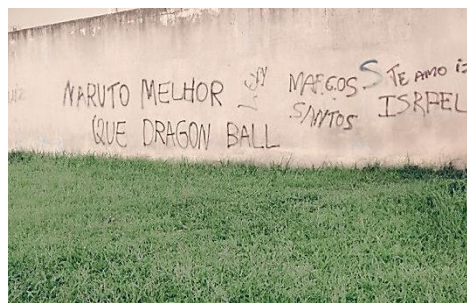 NARUTO MELHOR
QUE DRAGON BALL
MARCOS
SANTOS
S
TE AMO
ISRAEL